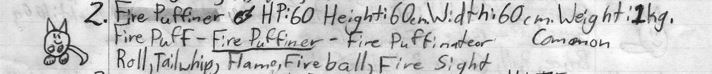 2. Fire Puffiner HP:60 Height:60cm Width:60cm. Weight:1kg.
Fire Puff - Fire Puffiner - Fire Puffinateor Comomon
Roll, Tailwhip, Flame, Fireball, Fire Sight